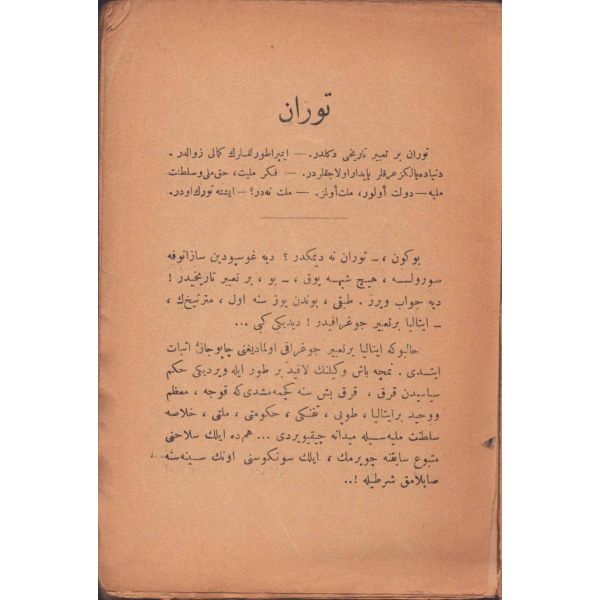 توران
توران بر تعبیر تاریخی دكلدر. — ایمپراطورلقلرك كمالی زوالدر.
دنیاده یالكز عرقلر پایدار اولاجقلردر. — فكر ملیت، حق ملی و سلطنت
ملیه — دولت أولور، ملت أولمز. — ملت نه در؟ — ایشته تورك اودر.
بوكون ، ــ توران نه دیمكدر ؟ دیه غوسپودین سازانوفه
صورولسه ، هیچ شبهه یوق ، ــ بو ، بر تعبیر تاریخیدر !
دیه جواب ویرر. طبقی ، بوندن یوز سنه اول ، مترنیخك ،
ــ ایتالیا بر تعبیر جوغرافیدر ! دیدیكی كبی ...
حالبوكه ایتالیا بر تعبیر جوغرافی اولمادیغنی چابوجاق اثبات
ایتدی . نمچه باش وكیلنك لاقید بر طور ایله ویردیكی حكم
سیاسیدن قرق ، قرق بش سنه كچمه مشدی كه قوجه ، معظم
و وحید بر ایتالیا ، طوپی ، تفنكی ، حكومتی ، ملتی ، خلاصه
سلطنت ملیه سیله میدانه چیقیویردی ... هم ده ایلك سلاحنی
متبوع سابقنه چویرمك ، ایلك سونكوسنی اونك سینه سنه
صاپلامق شرطیله !..